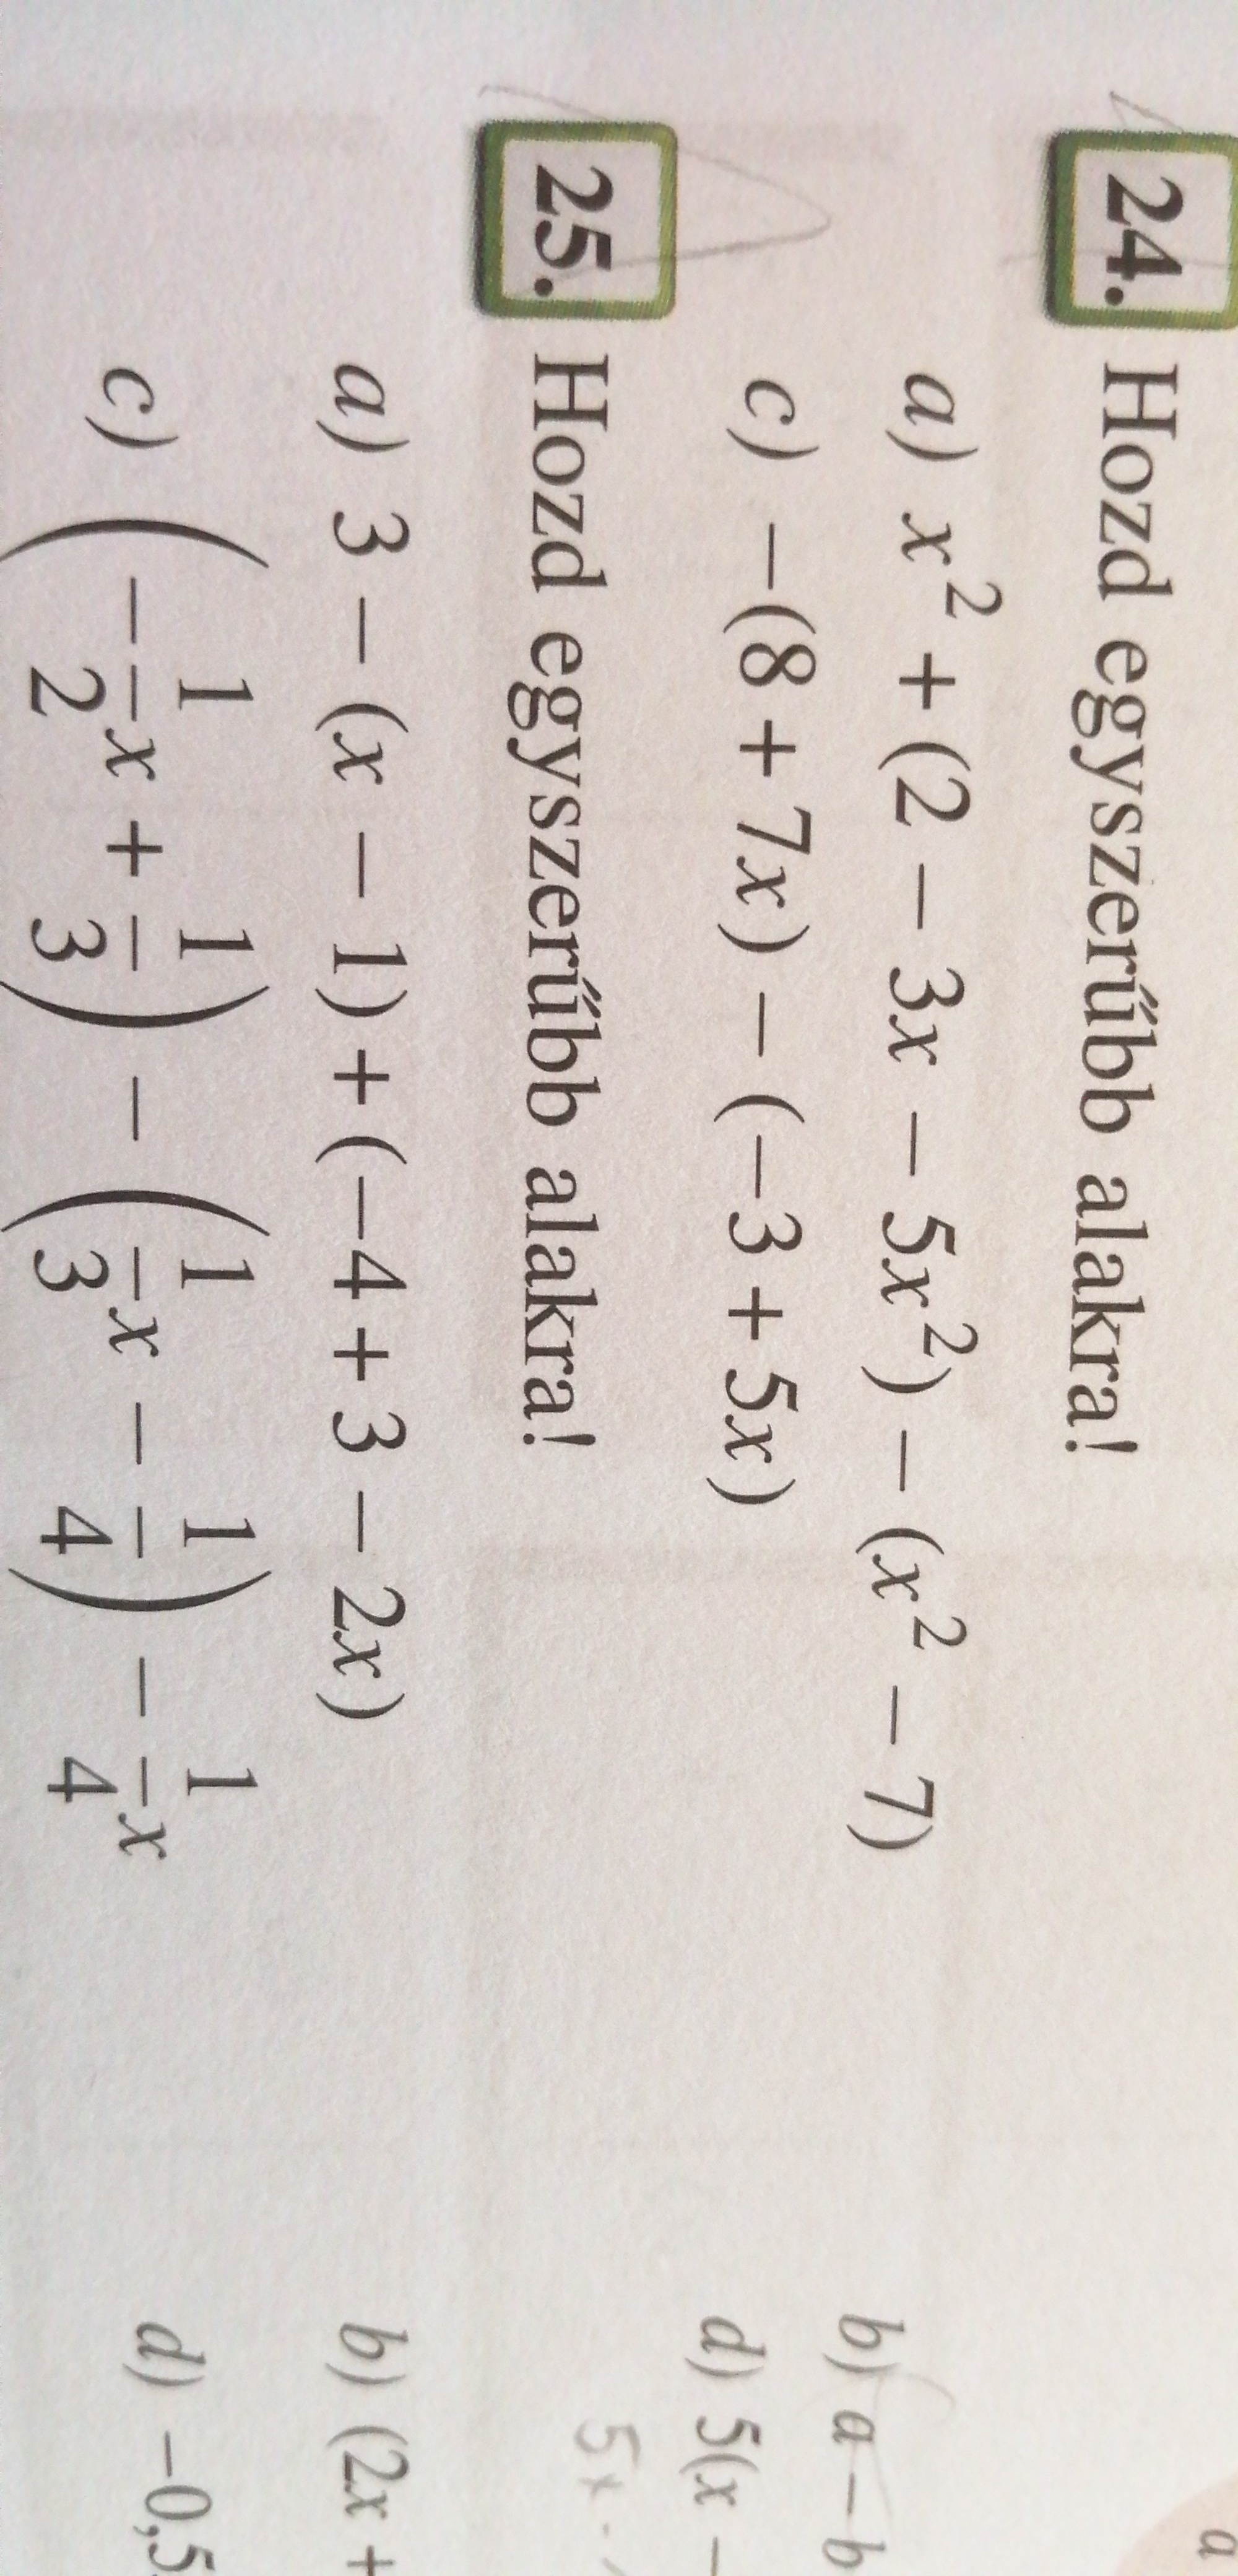 a
24. Hozd egyszerűbb alakra!
a) x² + (2 − 3x − 5x²) − (x² − 7) b) a − b
c) −(8 + 7x) − (−3 + 5x) d) 5(x −
5x
25. Hozd egyszerűbb alakra!
a) 3 − (x − 1) + (−4 + 3 − 2x) b) (2x +
c) (−1/2x + 1/3) − (1/3x − 1/4) − 1/4x d) −0,5